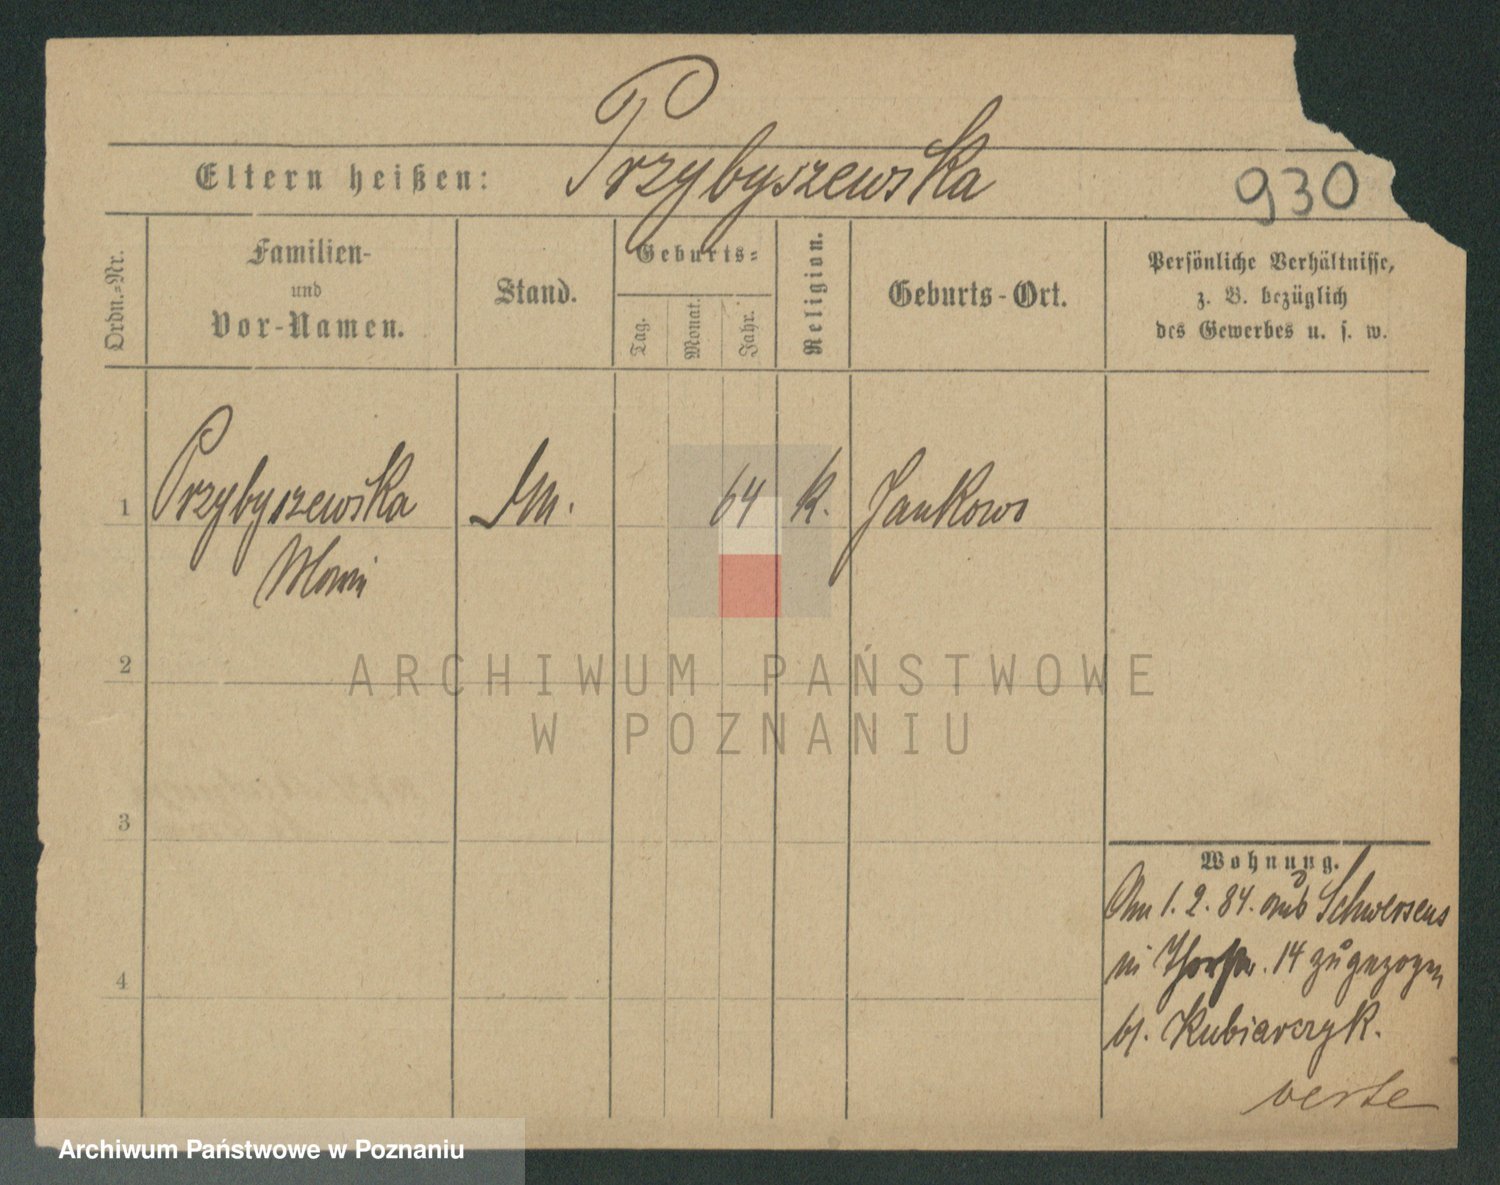 Przybyszewska
Eltern heißen:
930
Ordn.-Nr.
Familien-
und
Vor-Namen.
Stand.
Geburts-
Tag.
Monat.
Jahr.
Religion.
Geburts-Ort.
Persönliche Verhältnisse,
z. B. bezüglich
des Gewerbes u. s. w.
1
Przybyszewska
64
k.
Jankowo
2
3
4
Wohnung.
Am 1. 2. 84. aus Schwersens
in 14 zugezogen
b/. Kubiarczyk.
verte
ARCHIWUM PAŃSTWOWE
W POZNANIU
Archiwum Państwowe w Poznaniu